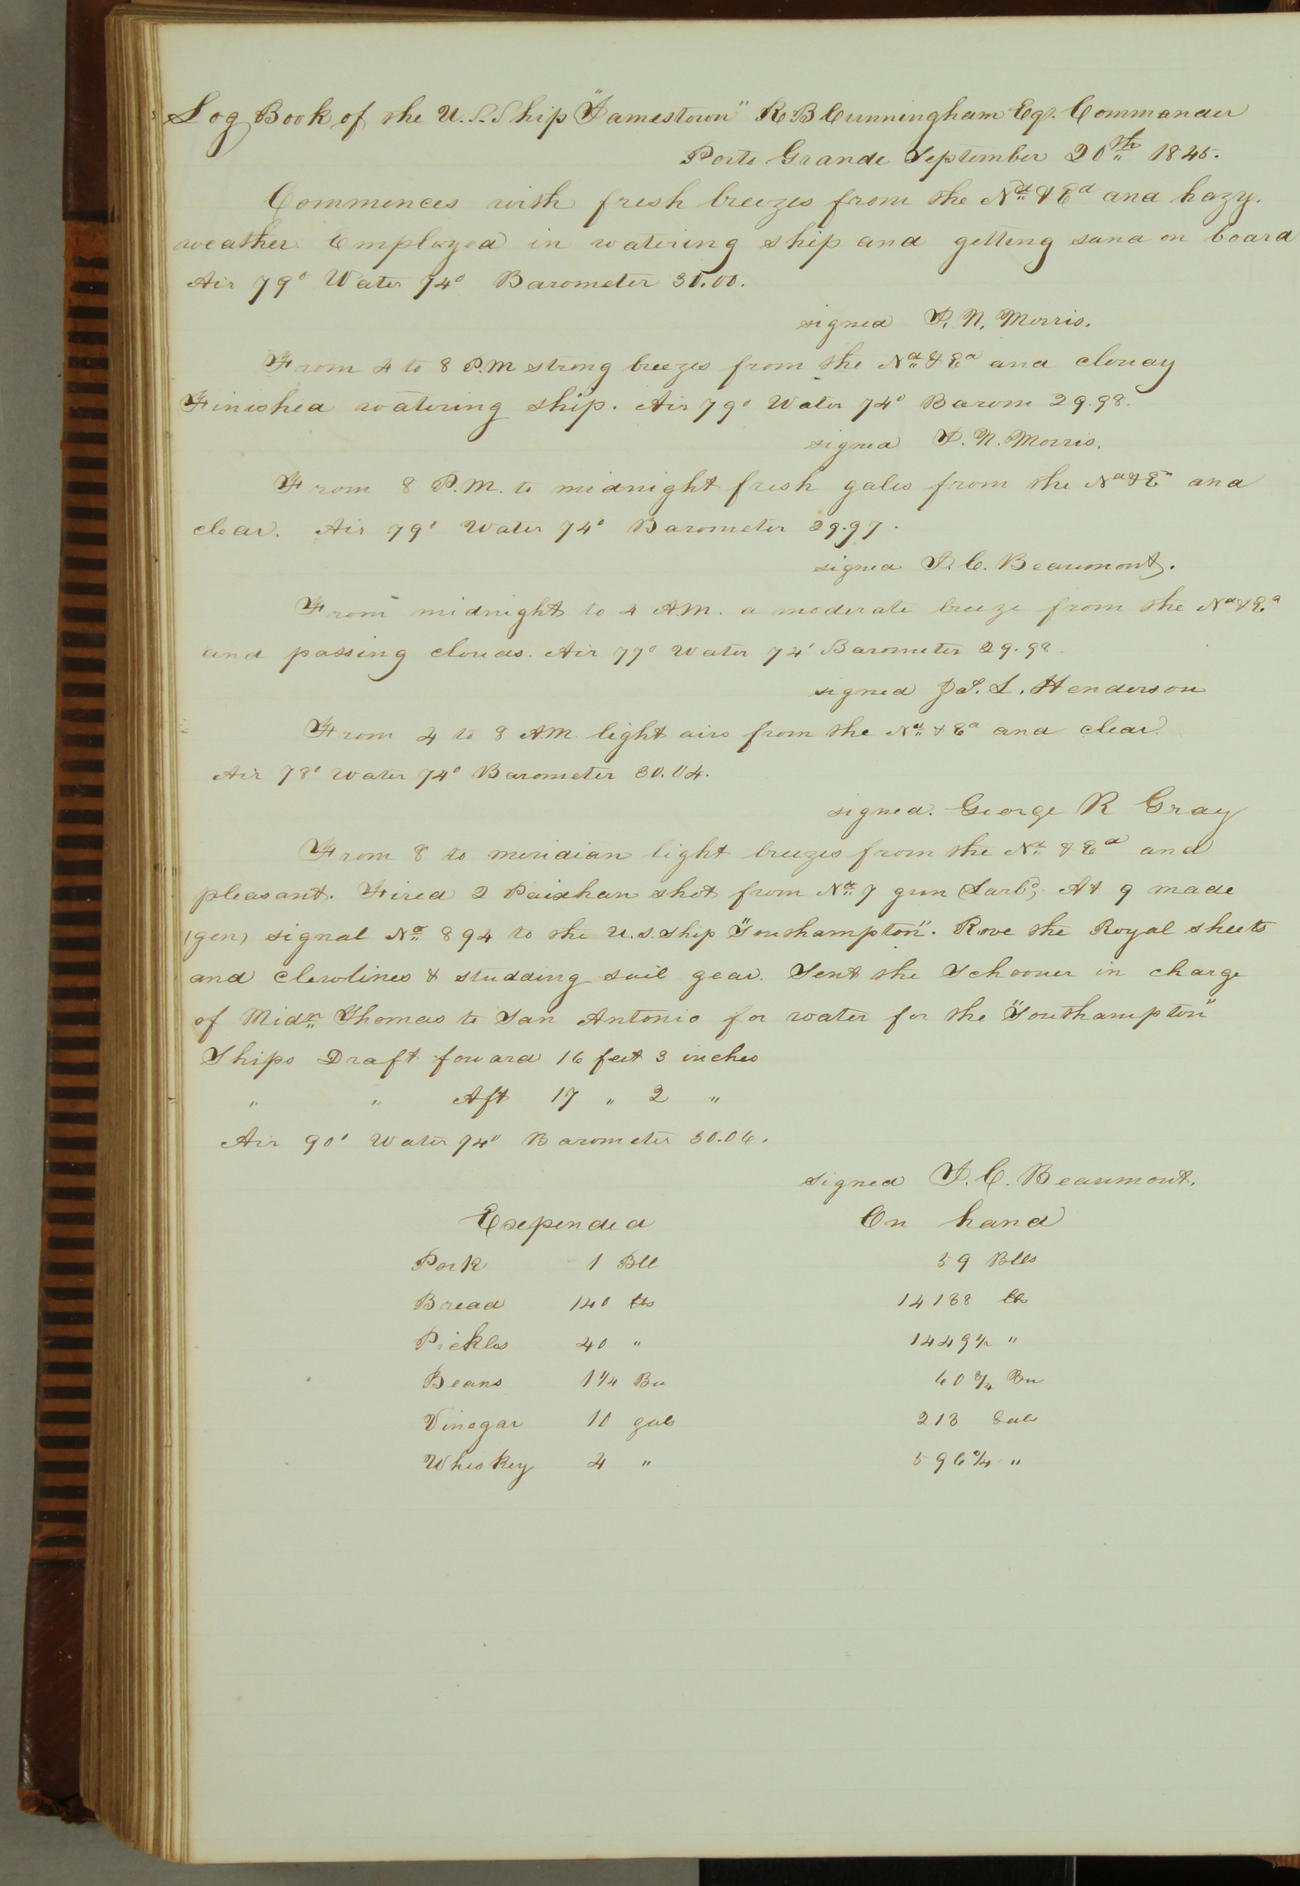 Log Book of the U.S. Ship "Jamestown" R B Cunningham Esqr. Commander
Porto Grande September 20th 1845.
Commences with fresh breezes from the Nd & Ed and hazy.
weather Employed in watering ship and getting sand on board
Air 79° Water 74° Barometer 30.00.
signed I. N. Morris.
From 4 to 8 P.M strong breezes from the Nd & Ed and cloudy
Finished watering ship. Air 79° Water 74° Barom 29.98.
signed I. N. Morris.
From 8 P.M. to midnight fresh gales from the Nd & Ed and
clear. Air 79° Water 74° Barometer 29.97.
signed J. C. Beaumont.
From midnight to 4 AM. a moderate breeze from the Nd & Ed
and passing clouds. Air 77° Water 74° Barometer 29.98.
signed Jas. L. Henderson
From 4 to 8 A.M. light airs from the Nd & Ed and clear.
Air 78° Water 74° Barometer 30.04.
signed. George R Gray
From 8 to meridian light breezes from the Nd & Ed and
pleasant. Fired 2 Paixhan shot from No 7 gun (Larbd) At 9 made
(gen) signal No 894 to the U.S. Ship "Southampton". Rove the Royal sheets
and clewlines & studding sail gear. Sent the Schooner in charge
of Midn Thomas to San Antonio for water for the "Southampton"
Ships Draft forward 16 feet 3 inches
" " Aft 17 " 2 "
Air 90° Water 74° Barometer 30.06.
signed J. C. Beaumont.
Expended On hand
Pork 1 Bll 59 Blls
Bread 140 lbs 14188 lbs
Pickles 40 " 1449 1/2 "
Beans 1 1/4 Bu 60 3/4 Bu
Vinegar 10 gals 213 Gals
Whiskey 4 " 596 3/4 "